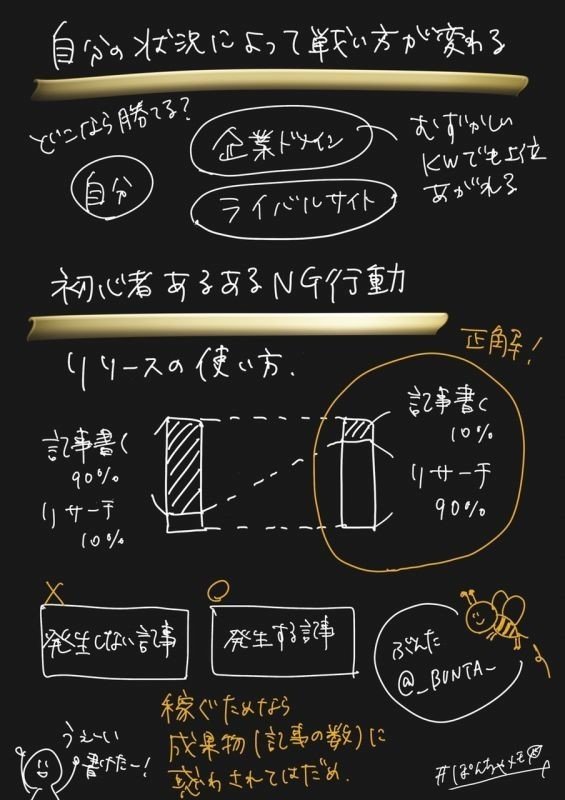 自分の状況によって戦い方が変わる
どこなら勝てる?
自分
企業ドメイン
ライバルサイト
むずかしい
KWでも上位
あがれる
初心者あるあるNG行動
リリースの使い方.
正解!
記事書く
90%
リサーチ
10%
記事書く
10%
リサーチ
90%
×
発生しない記事
○
発生する記事
ぶんた
@_BUNTA_
うぇーい
書けたー!
稼ぐためなら
成果物(記事の数)に
惑わされてはだめ.
#ぽんちゃメモ